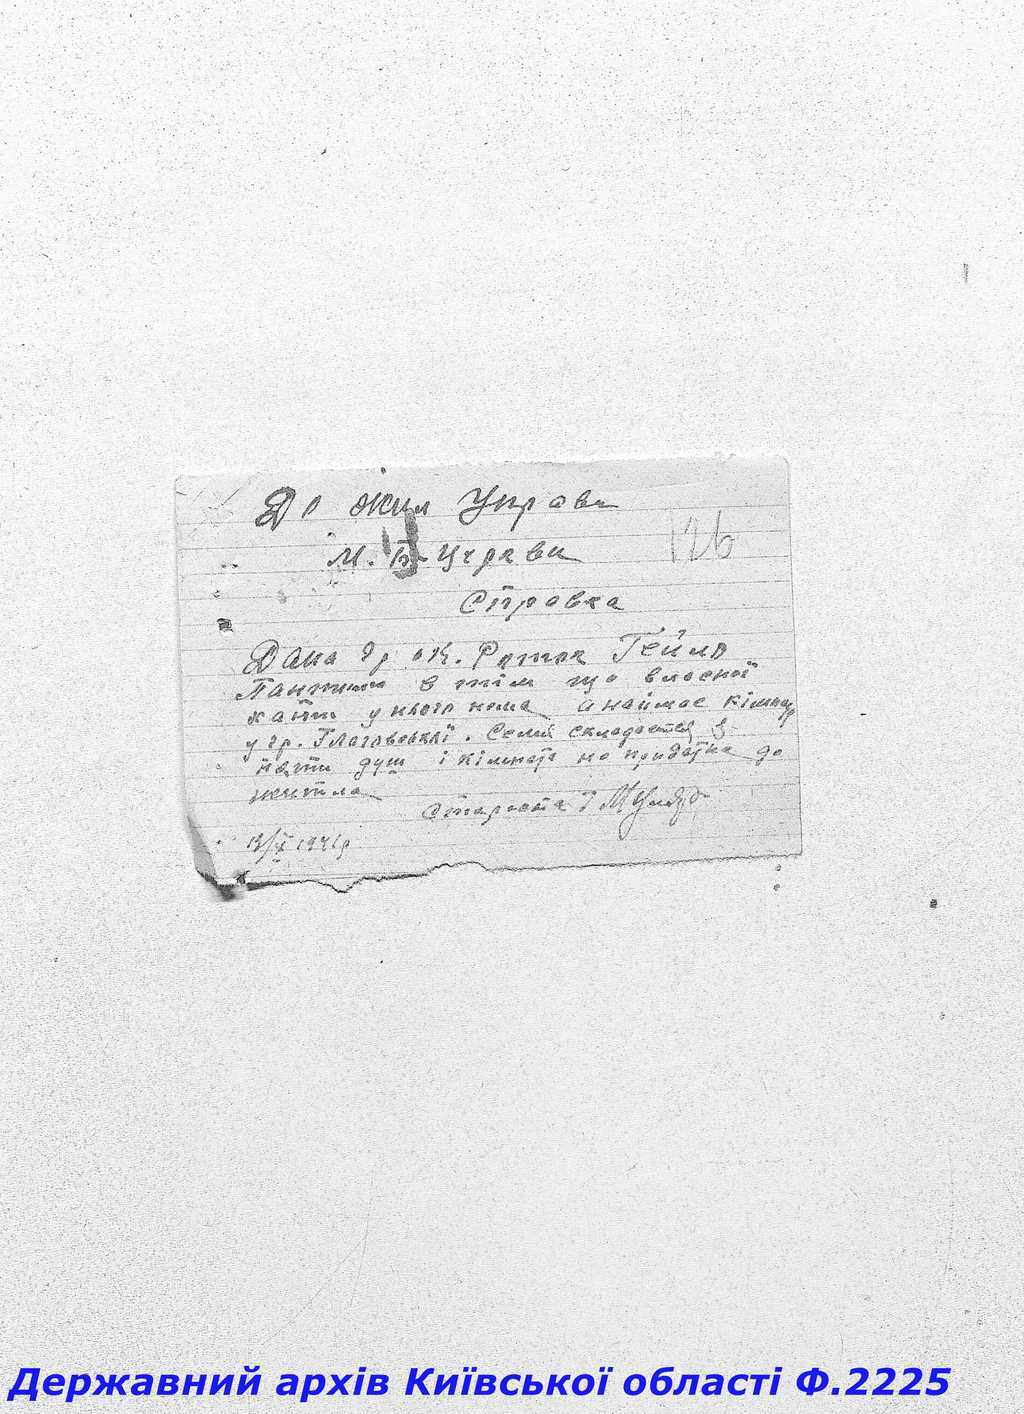 До жил Управи
м. Б-Церкви
126
Справка
Дана гр
в тім що власної
хати у нього нема а наймає кімнату
у гр. Глоговської. Семя складается з
пяти душ і кімната не придатна до
житла
Староста
1941р
Державний архів Київської області Ф.2225